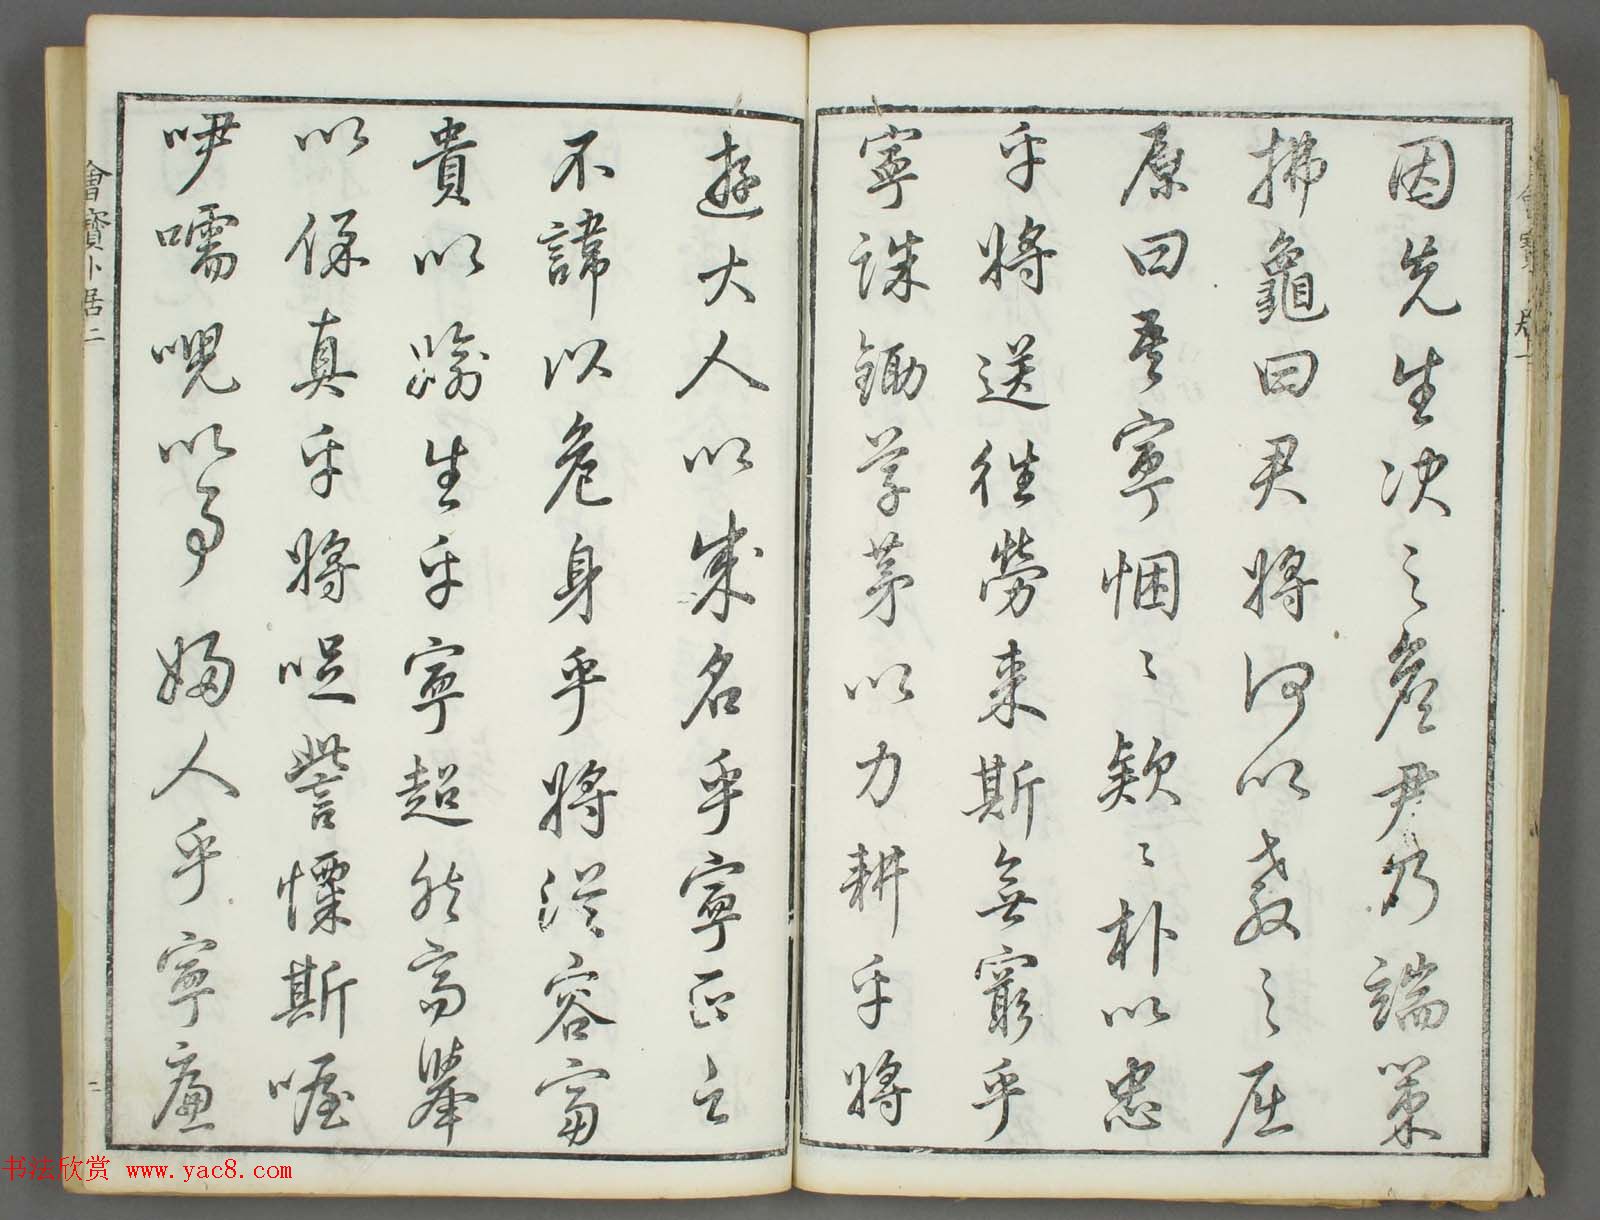 因先生決之詹尹乃端策
拂龜曰君將何以教之屈
原曰吾寧悃〻款〻朴以忠
乎將送往勞來斯無窮乎
寧誅鋤草茅以力耕乎將
遊大人以成名乎寧正言
不諱以危身乎將從容富
貴以踰生乎寧超然高舉
以保真乎將哫訾慄斯喔
咿嚅唲以事婦人乎寧廉
會寶卜居二
二
书法欣赏 www.yac8.com